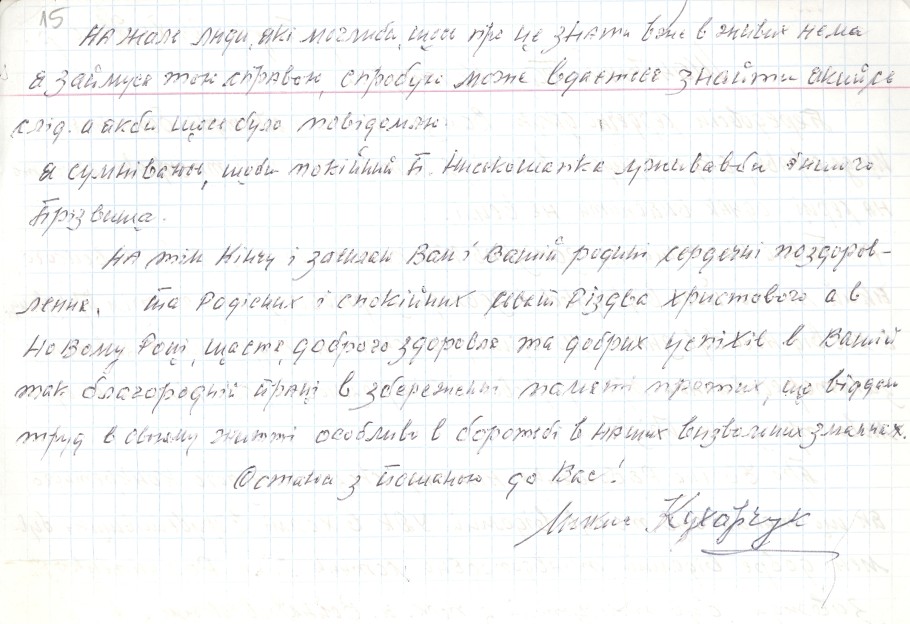 15
На жаль люди, які могли би щось про це знати вже в живих нема
я займуся тою справою, спробую може вдасться знайти якийсь
слід. а якби щось було повідомлю.
я сумніваюсь, щоби покійний П. уживав би іншого
Прізвища.
На тім Кінчу і засилаю Вам і Вашій родині сердечні поздоров-
лення, та Радісних і спокійних свят Різдва христового а в
Новому Році, щастя, доброго здоровля та добрих успіхів в Вашій
так благородній праці в збереженні памяті про тих, що віддали
труд в своєму житті особливо в боротьбі в наших визвольних змаганнях.
Остаюсь з Пошаною до Вас!
Кухарчук